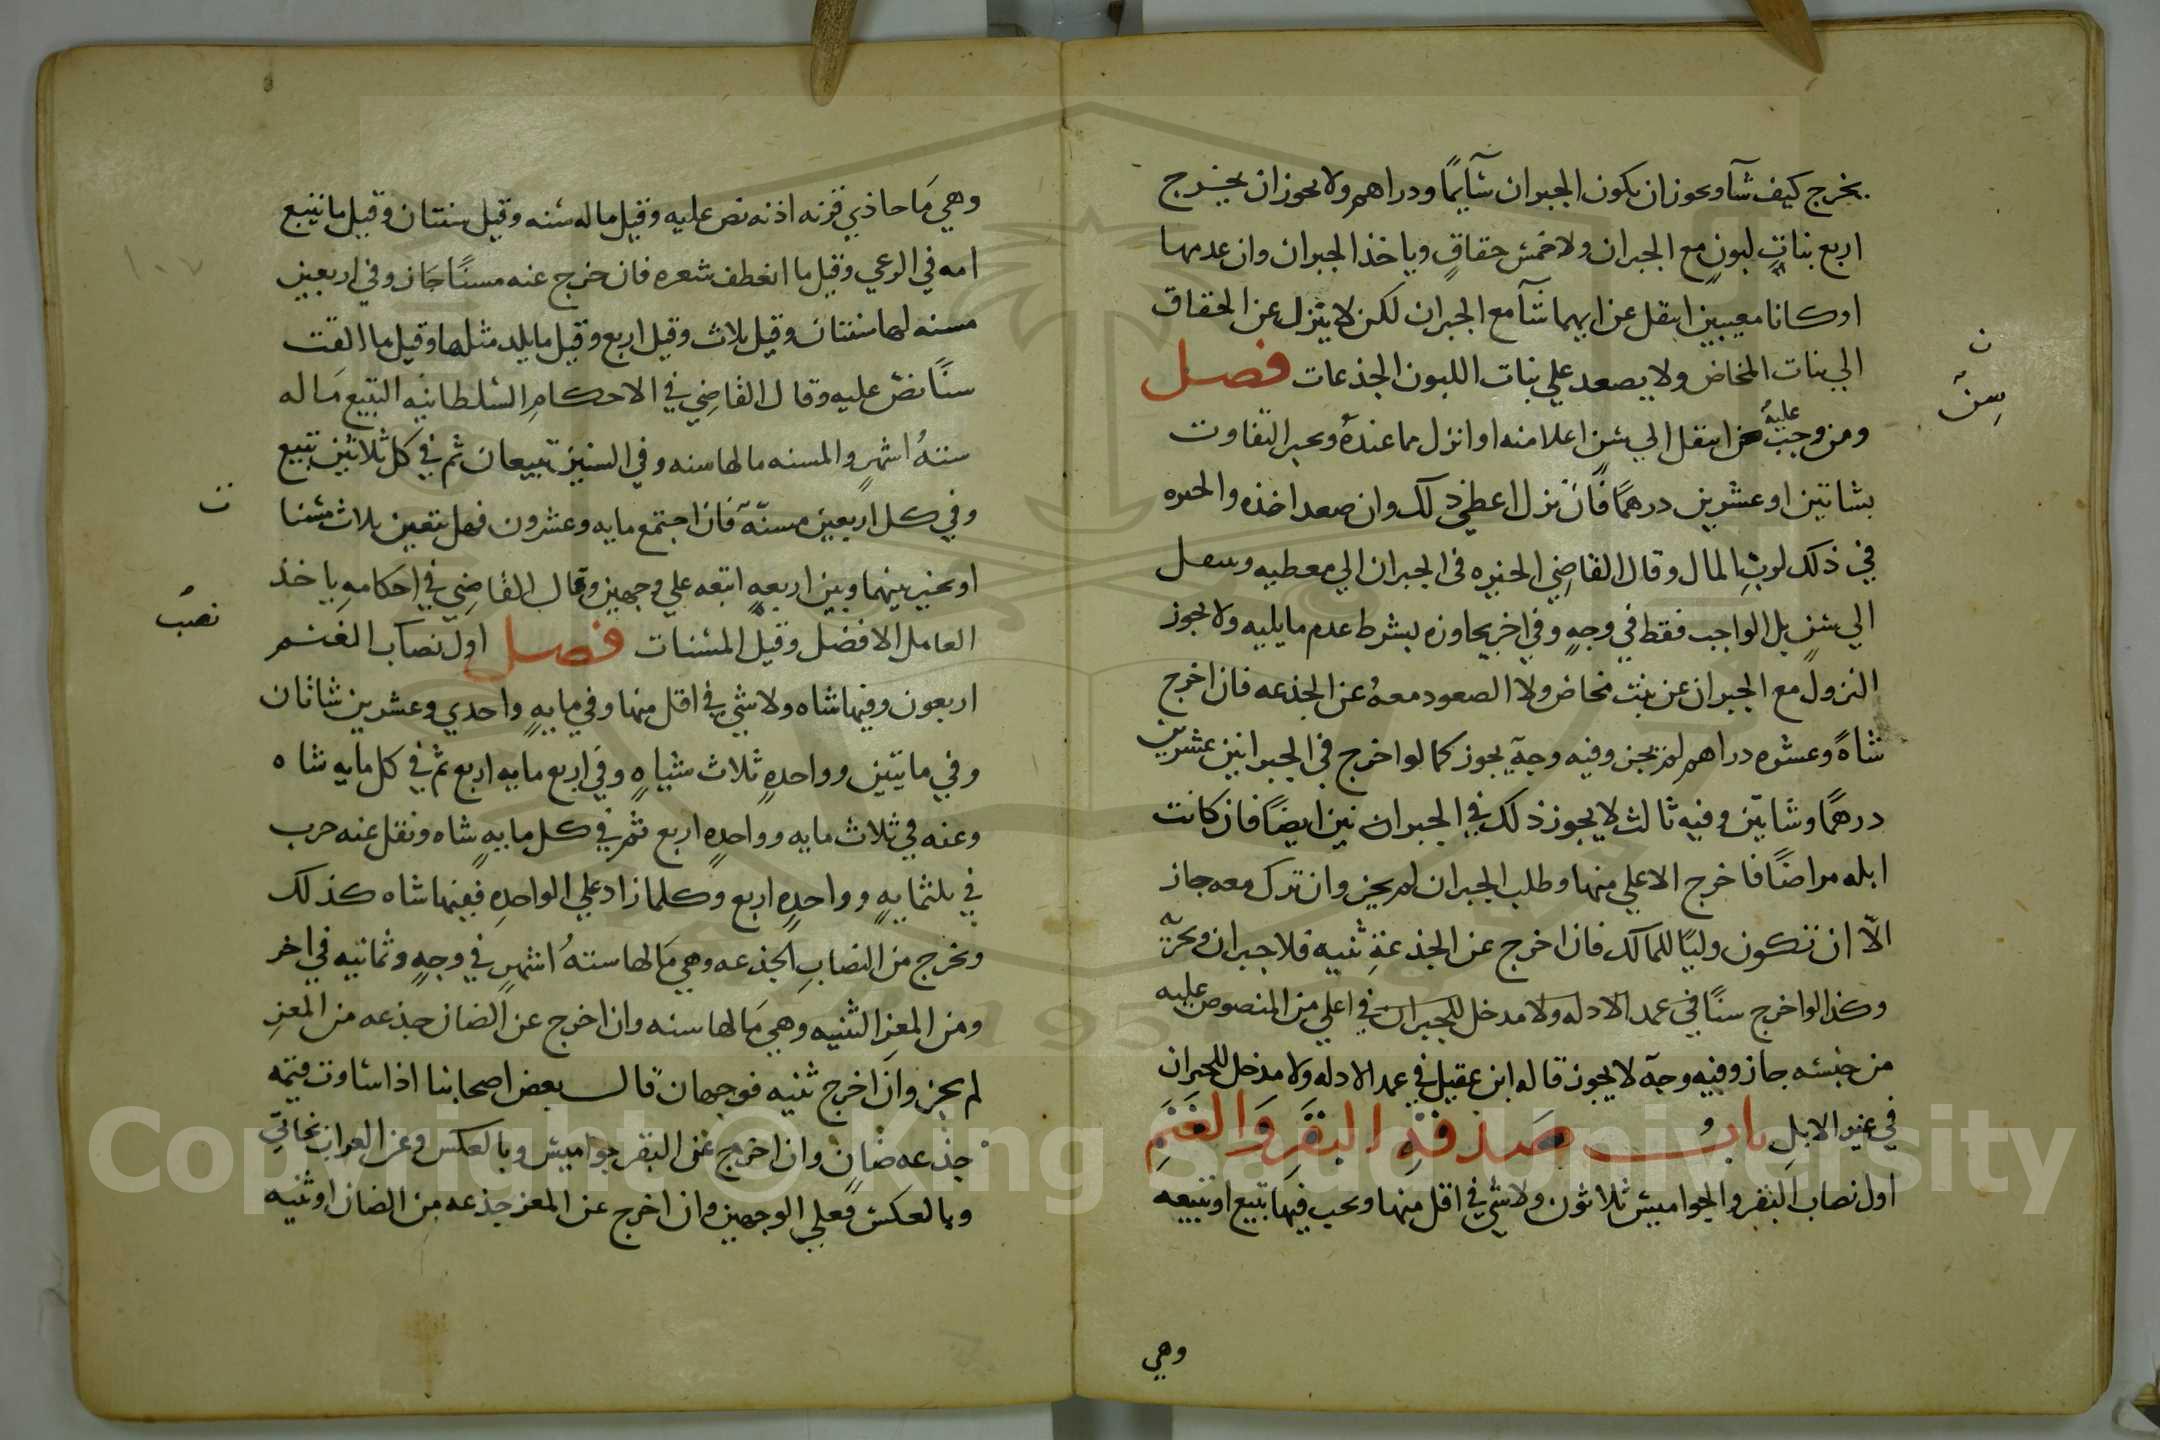 يخرج كيف شآ ويجوز ان يكون الجبران شآيمًا ودراهم ولا يجوز ان يخرج
اربع بناتٍ لبونٍ مع الجبران ولا خمش حقاقٍ وياخذ الجبران وان عدمها
اوكانا معيبين انتقل عن ايهما شآ مع الجبران لكن لا ينزل عن الحقاق
الي بنات المخاض ولا يصعد علي بنات اللبون الجذعات فصل
ومن وجب عليه سن انتقل الي سن اعلا منه او انزل مما عنده ويجبر التفاوت
بشاتين او عشرين درهمًا فان نزل اعطي ذلك وان صعد اخذه والخيره
في ذلك لربِ المال وقال القاضِي الخيره في الجبران الي معطيه وينتقل
الي سنٍ يلي الواجب فقط في وجهٍ وفي اخر يجاوزه بشرط عدم ما يليه ولا يجوز
النزول مع الجبران عن بنت مخاض ولا الصعود معهُ عن الجذعه فان اخرج
شاةً وعشره دراهم لم يجز وفيه وجه يجوز كما لو اخرج في الجبرانين عشرين
درهمًا وشاتين وفيه ثالث لا يجوز ذلك في الجبرانين ايضًا فان كانت
ابله مراضًا فاخرج الاعلي منها وطلب الجبران لم يجز وان ترك معه جاز
الّا ان تكون وليًا للمالك فان اخرج عن الجذعةِ ثنيه فلا جبران ويجزئه
وكذا لو اخرج سنًا في عمد الادله ولا مدخل للجبران في اعلي من المنصوص عليه
من جنسه جاز وفيه وجه لا يجوز قاله ابن عقيل في عمد الادله ولا مدخل للجبران
في غير الابلِ باب صَدَقةِ البقَرِ وَالغَنَمِ
اول نصاب البقر والجواميش ثلاثون ولا شي في اقل منها ويجب فيها تبيع او تبيعه
وهي
ن
سن
وهي مَا حاذي قرنه اذنه نص عليه وقيل ما له سنه وقيل سنتان وقيل ما يتبع
امه في الرعي وقيل ما انعطف شعره فان خرج عنه مسنًا جَاز وفي اربعين
مسنه لها سنتان وقيل ثلاث وقيل اربع وقيل ما يلد مثلها وقيل ما القت
سنًا نص عليه وقال القاضِي في الاحكامِ السُلطانيه التبيع مَا له
ستهُ اشهرٍ والمسنه ما لها سنه وفي الستين تبيعان ثم في كل ثلاثين تبيع
وفي كل اربعين مسنّه فان اجتمع مايه وعشرون فهل يتعين ثلاث مسنات
او يخير بينهما وبين اربعهٍ اتبعه علي وجهين وقال القاضِي في احكامهِ ياخذ
العامل الافضل وقيل المسنات فصل اول نصَاب الغنم
اربعون وفيها شاه ولا شي في اقل منها وفي مايهٍ واحدي وعشرين شاتان
وفي مايتين وواحدهٍ ثلاث شياهٍ وفي اربع مايه اربع ثم في كل مايه شاه
وعنه في ثلاث مايه وواحدهٍ اربع ثم في كل مايهٍ شاه ونقل عنه حرب
في ثلثمايهٍ وواحدهٍ اربع وكلما زاد علي الواحدهِ ففيها شاه كذلك
ويخرج من النصابِ الجذعه وهي مَا لها ستهُ اشهرٍ في وجهٍ وثمانيه في اخر
ومن المعزِ الثنيه وهي مَا لها سنه وان اخرج عن الضان جذعه من المعزِ
لم يجز وان اخرج ثنيه فوجهان قال بعض اصحابنا اذا ساوت قيمه
جذعه ضانٍ وان اخرج عن البقر جواميش وبالعكس وعن العراب بخاتي
وبالعكس فعلي الوجهين وان اخرج عن المعز جذعه من الضان او ثنيه
ن
نصب
١٠٧
Copyright © King Saud University
1957